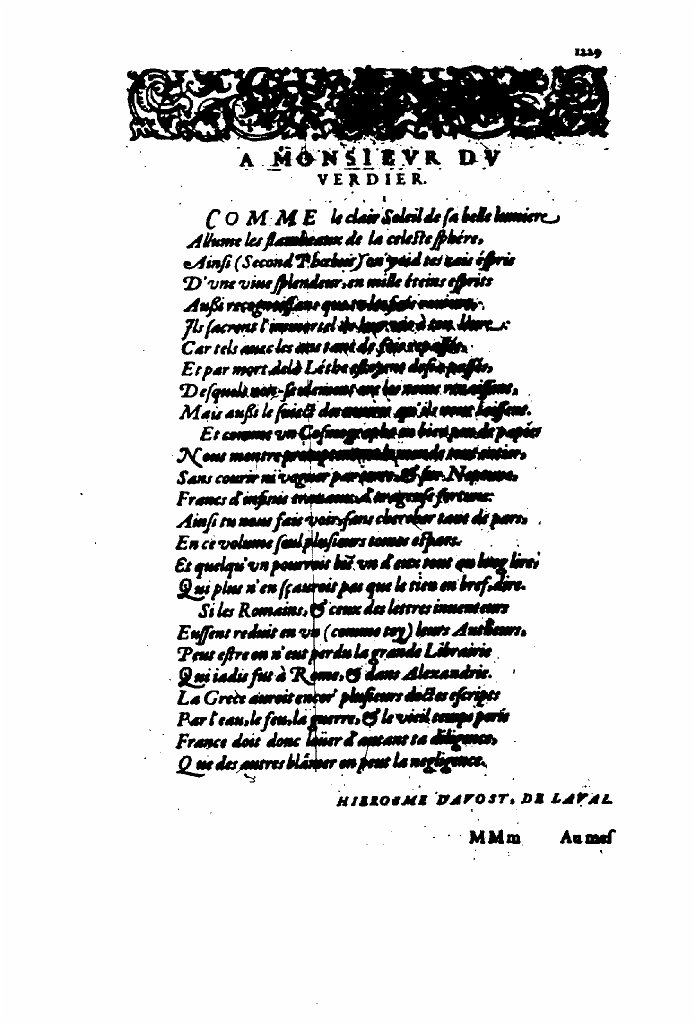 1229
A MONSIEVR DV
VERDIER.
COMME le clair Soleil de sa belle lumiere
Allume les flambeaux de la celeste sphére,
Ainsi (Second Phœbus) on void tes rais espris
D'vne viue splendeur, en mille éteins esprits
Außi recognoissans que tu les fais
Ils sacrent l'immortel à ton liure:
Car tels auec les ans tant de fois repassés,
Et par mort delà Léthe estoyent desia passés,
Desquels non-seulement ore les noms renaissent,
Mais außi le suiect des œuures qu'ils nous laissent.
Et comme vn Cosmographe en bien peu de papier
Nous montre le monde tout entier,
Sans courir ni voguer par terre, & sur Neptune,
Francs d'infinis trauaux, d'orageuse fortune:
Ainsi tu nous fais voir, sans chercher tant de pars,
En ce volume seul plusieurs tomes espars.
Et quelqu'vn pourroit bien vn d'eux tout au long lire,
Qui plus n'en sçauroit pas que le tien en bref, dire.
Si les Romains, & ceux des lettres inuenteurs
Eussent reduit en vn (comme toy) leurs Autheurs,
Peut estre on n'eut perdu la grande Librairie
Qui iadis fut à Rome, & dans Alexandrie.
La Grece auroit encor' plusieurs doctes escripts
Par l'eau, le feu, la guerre, & le vieil temps peris
France doit donc loüer d'autant ta diligence,
Que des autres blâmer on peut la negligence.
HIEROSME D'AVOST, DE LAVAL.
MMm Au mes